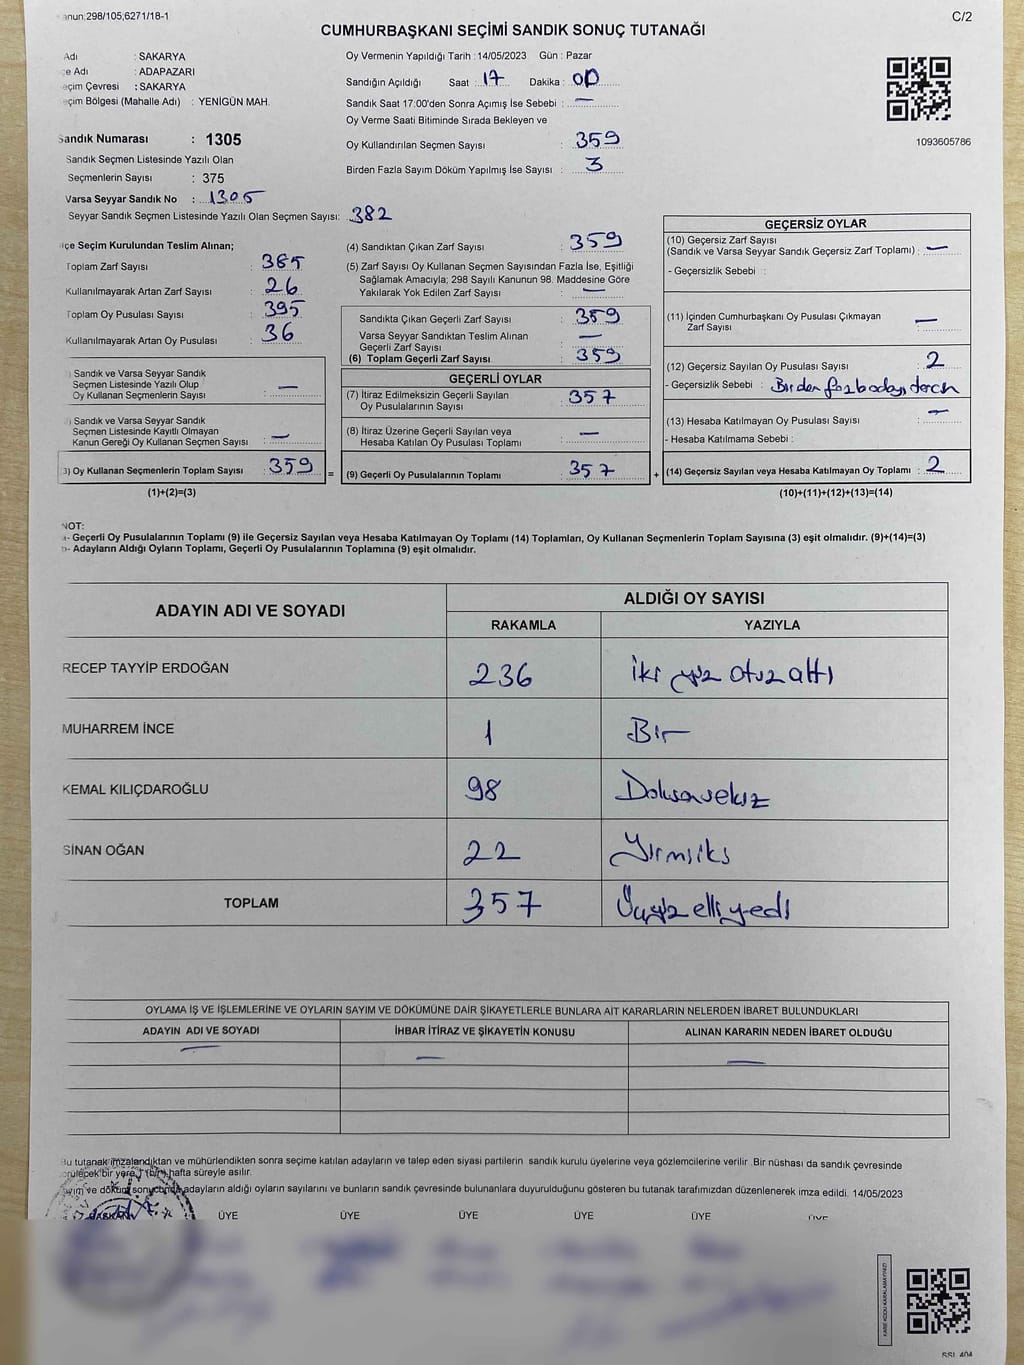 anun:298/105;6271/18-1
C/2
CUMHURBAŞKANI SEÇİMİ SANDIK SONUÇ TUTANAĞI
Adı : SAKARYA
e Adı : ADAPAZARI
eçim Çevresi : SAKARYA
eçim Bölgesi (Mahalle Adı) : YENİGÜN MAH.
Sandık Numarası : 1305
Sandık Seçmen Listesinde Yazılı Olan
Seçmenlerin Sayısı : 375
Varsa Seyyar Sandık No : 1305
Seyyar Sandık Seçmen Listesinde Yazılı Olan Seçmen Sayısı: 382
Oy Vermenin Yapıldığı Tarih : 14/05/2023 Gün : Pazar
Sandığın Açıldığı Saat : 17 Dakika : 00
Sandık Saat 17:00'den Sonra Açımış İse Sebebi : —
Oy Verme Saati Bitiminde Sırada Bekleyen ve
Oy Kullandırılan Seçmen Sayısı : 359
Birden Fazla Sayım Döküm Yapılmış İse Sayısı : 3
1093605786
lçe Seçim Kurulundan Teslim Alınan;
Toplam Zarf Sayısı : 385
Kullanılmayarak Artan Zarf Sayısı : 26
Toplam Oy Pusulası Sayısı : 395
Kullanılmayarak Artan Oy Pusulası : 36
) Sandık ve Varsa Seyyar Sandık
Seçmen Listesinde Yazılı Olup
Oy Kullanan Seçmenlerin Sayısı : —
) Sandık ve Varsa Seyyar Sandık
Seçmen Listesinde Kayıtlı Olmayan
Kanun Gereği Oy Kullanan Seçmen Sayısı : —
3) Oy Kullanan Seçmenlerin Toplam Sayısı : 359
(1)+(2)=(3)
(4) Sandıktan Çıkan Zarf Sayısı : 359
(5) Zarf Sayısı Oy Kullanan Seçmen Sayısından Fazla İse, Eşitliği
Sağlamak Amacıyla; 298 Sayılı Kanunun 98. Maddesine Göre
Yakılarak Yok Edilen Zarf Sayısı : —
Sandıkta Çıkan Geçerli Zarf Sayısı : 359
Varsa Seyyar Sandıktan Teslim Alınan
Geçerli Zarf Sayısı : —
(6) Toplam Geçerli Zarf Sayısı : 359
GEÇERLİ OYLAR
(7) İtiraz Edilmeksizin Geçerli Sayılan
Oy Pusulalarının Sayısı : 357
(8) İtiraz Üzerine Geçerli Sayılan veya
Hesaba Katılan Oy Pusulası Toplamı : —
= (9) Geçerli Oy Pusulalarının Toplamı : 357 +
GEÇERSİZ OYLAR
(10) Geçersiz Zarf Sayısı
(Sandık ve Varsa Seyyar Sandık Geçersiz Zarf Toplamı) : —
- Geçersizlik Sebebi :
(11) İçinden Cumhurbaşkanı Oy Pusulası Çıkmayan
Zarf Sayısı : —
(12) Geçersiz Sayılan Oy Pusulası Sayısı : 2
- Geçersizlik Sebebi : Birden
(13) Hesaba Katılmayan Oy Pusulası Sayısı : —
- Hesaba Katılmama Sebebi :
(14) Geçersiz Sayılan veya Hesaba Katılmayan Oy Toplamı : 2
(10)+(11)+(12)+(13)=(14)
NOT:
a- Geçerli Oy Pusulalarının Toplamı (9) ile Geçersiz Sayılan veya Hesaba Katılmayan Oy Toplamı (14) Toplamları, Oy Kullanan Seçmenlerin Toplam Sayısına (3) eşit olmalıdır. (9)+(14)=(3)
b- Adayların Aldığı Oyların Toplamı, Geçerli Oy Pusulalarının Toplamına (9) eşit olmalıdır.
ADAYIN ADI VE SOYADI
ALDIĞI OY SAYISI
RAKAMLA YAZIYLA
RECEP TAYYİP ERDOĞAN 236 iki yüz otuz altı
MUHARREM İNCE 1 Bir
KEMAL KILIÇDAROĞLU 98 Doksansekiz
SİNAN OĞAN 22 Yirmiiki
TOPLAM 357 Üçyüz elli yedi
OYLAMA İŞ VE İŞLEMLERİNE VE OYLARIN SAYIM VE DÖKÜMÜNE DAİR ŞİKAYETLERLE BUNLARA AİT KARARLARIN NELERDEN İBARET BULUNDUKLARI
ADAYIN ADI VE SOYADI İHBAR İTİRAZ VE ŞİKAYETİN KONUSU ALINAN KARARIN NEDEN İBARET OLDUĞU
— — —
Bu tutanak imzalandıktan ve mühürlendikten sonra seçime katılan adayların ve talep eden siyasi partilerin sandık kurulu üyelerine veya gözlemcilerine verilir. Bir nüshası da sandık çevresinde
görülecek bir yere 1 (bir) hafta süreyle asılır.
Sayım ve döküm sonucunda adayların aldığı oyların sayılarını ve bunların sandık çevresinde bulunanlara duyurulduğunu gösteren bu tutanak tarafımızdan düzenlenerek imza edildi. 14/05/2023
BAŞKAN ÜYE ÜYE ÜYE ÜYE ÜYE ÜYE
KARE KODU KARALAMAYINIZ!